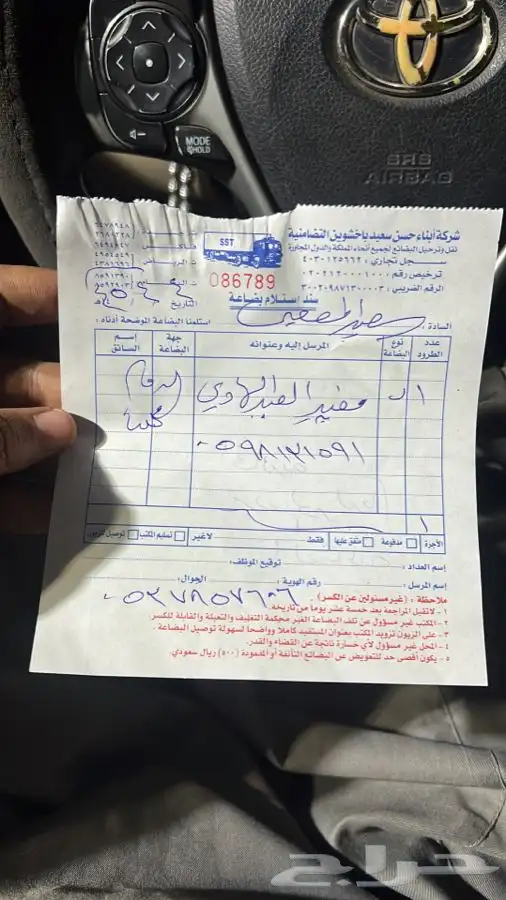 MODE
HOLD
SRS
AIRBAG
شركة أبناء حسن سعيد باخشوين التضامنية
نقل وترحيل البضائع لجميع أنحاء المملكة والدول المجاورة
سجل تجاري : ٤٠٣٠١٢٥٦٦٢
ترخيص رقم : ٠٢٠٢١٢٠٠٠١٠٠
الرقم الضريبي : ٣٠٠٢٠٩٨٧١٣٠٠٠٠٣
SST
086789
سند إستلام بضاعة
فاكس
التاريخ
السادة :
إستلمنا البضاعة الموضحة أدناه :
عدد الطرود
نوع البضاعة
المرسل إليه وعنوانه
جهة البضاعة
إسم السائق
١
مفيد العبد الهادي
٠٥٩٨١٢١٥٩١
١
الأجرة
مدفوعة
متفق عليها
فقط
لاغير
تسليم المكتب
إسم العداد :
توقيع الموظف:
إسم المرسل :
رقم الهوية :
الجوال:
٠٥٢٧٨٥٧٦٠٦
ملاحظة : (غير مسئولين عن الكسر)
١ - لاتقبل المراجعة بعد خمسة عشر يوما من تاريخه.
٢ - المكتب غير مسؤول عن تلف البضاعة الغير محكمة التغليف والتعبئة والقابلة للكسر.
٣ - على الزبون تزويد المكتب بعنوان المستفيد كاملا وواضحا لسهولة توصيل البضاعة .
٤ - المحل غير مسؤول لأي خسارة ناتجة عن القضاء والقدر.
٥ - يكون أقصى حد للتعويض عن البضائع التالفة أو المفقودة (٥٠٠) ريال سعودي.
حراج